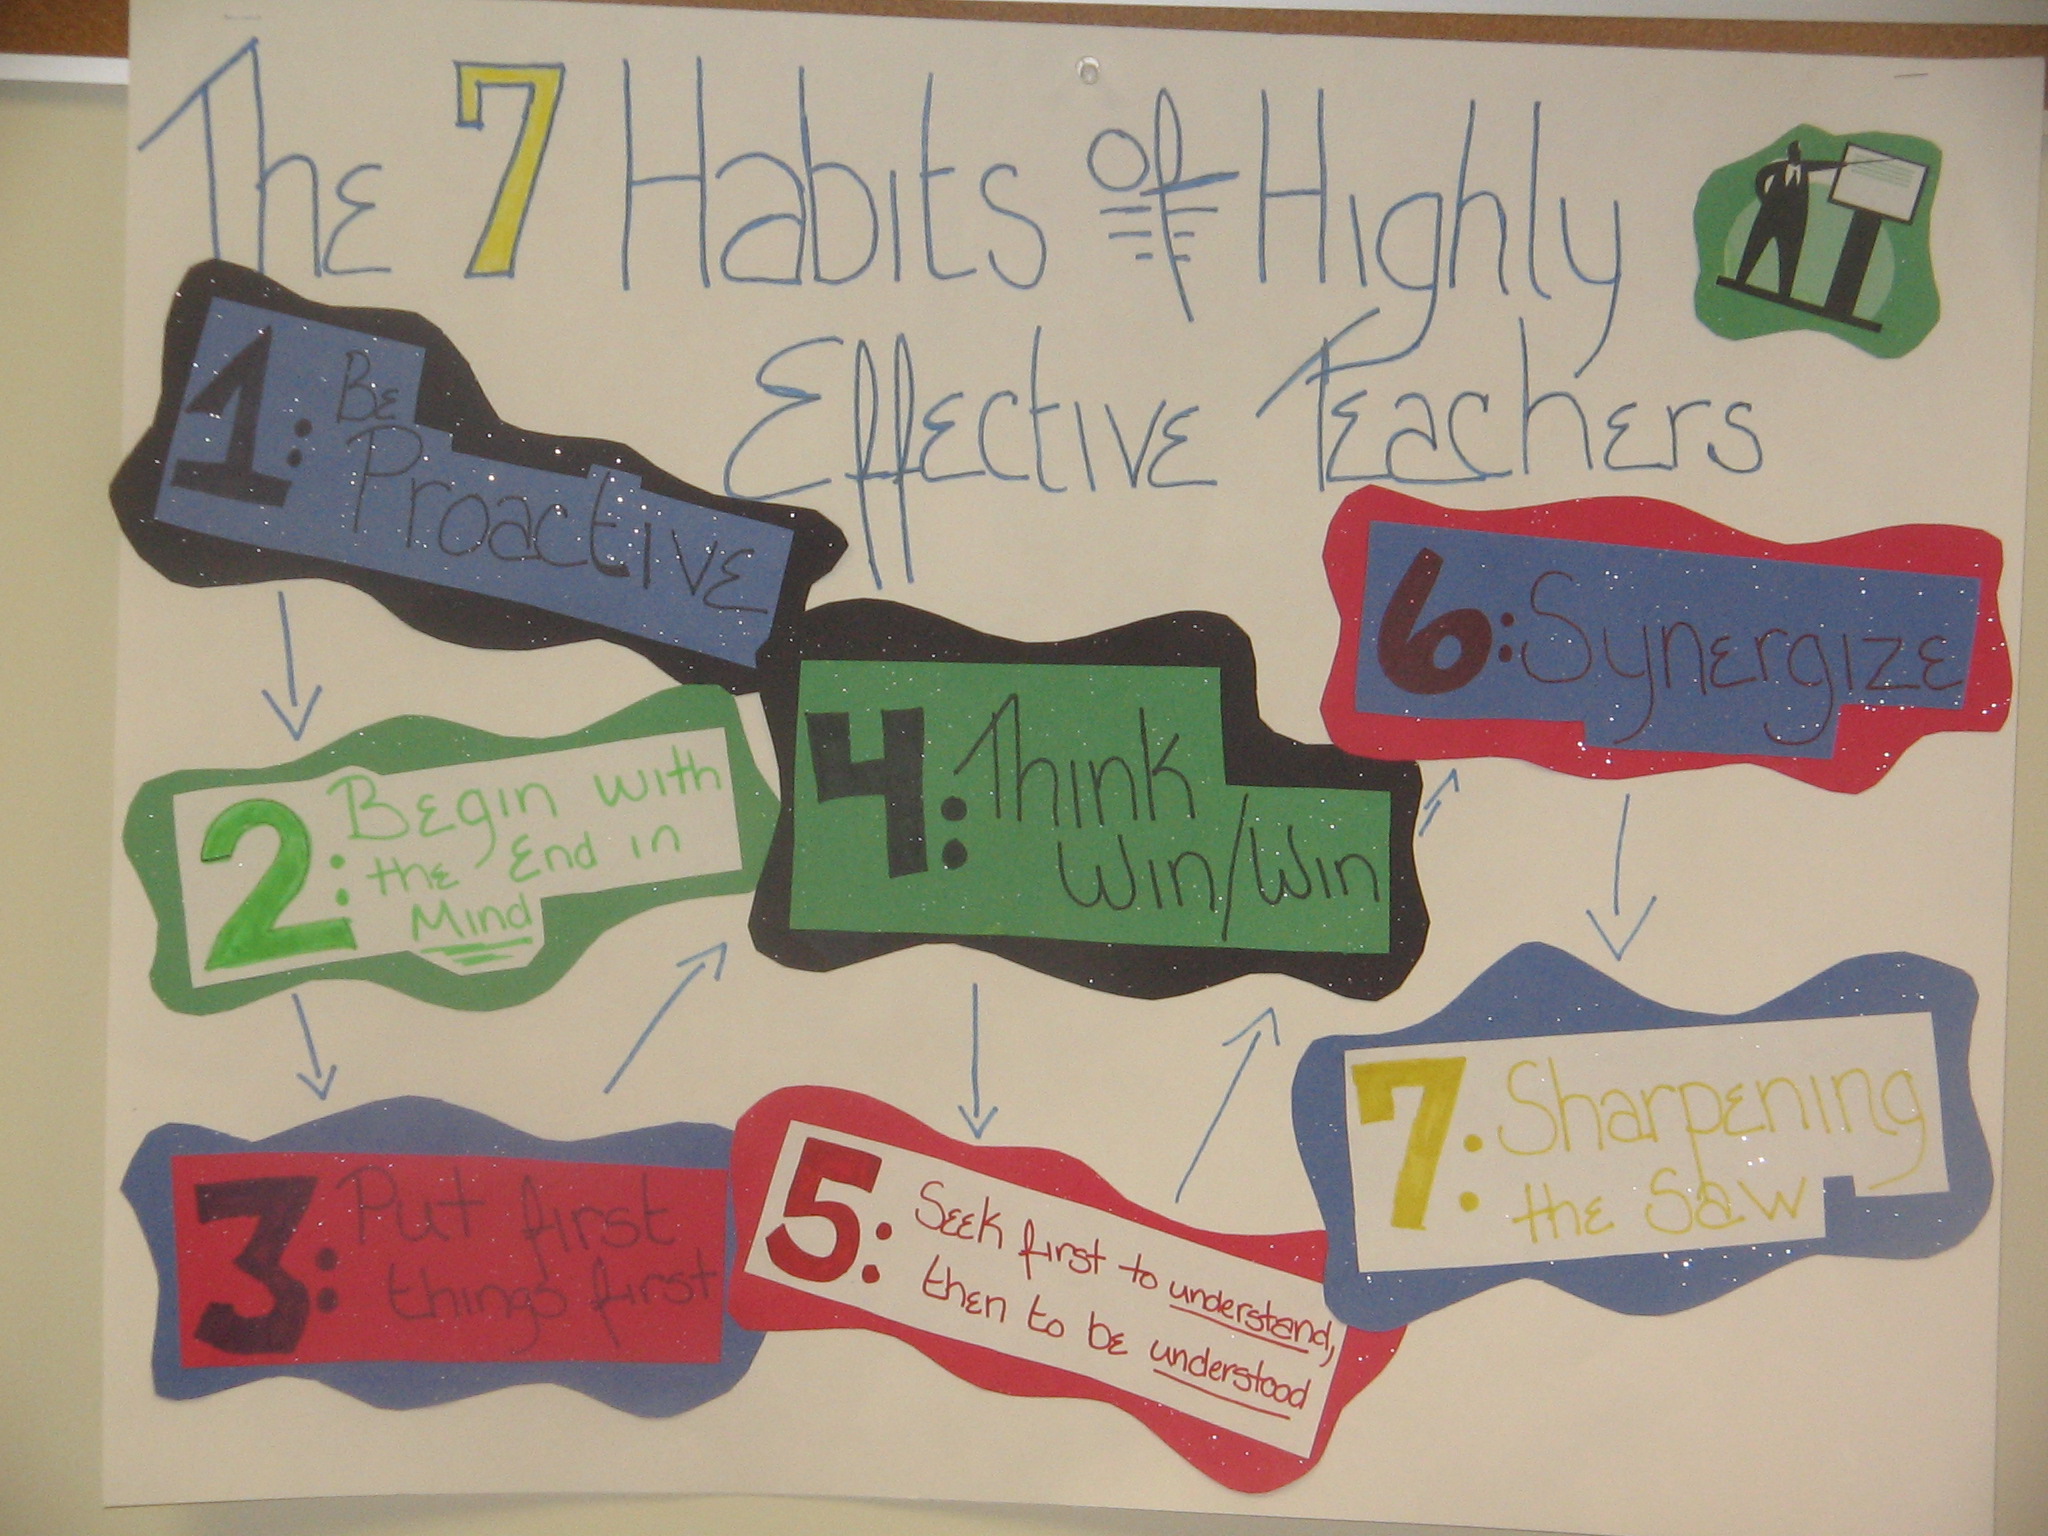 The 7 Habits of Highly
Effective Teachers
1: Be
Proactive
2: Begin with
the End in
Mind
3: Put first
things first
4: Think
Win/Win
5: Seek first to understand,
then to be understood
6: Synergize
7: Sharpening
the Saw